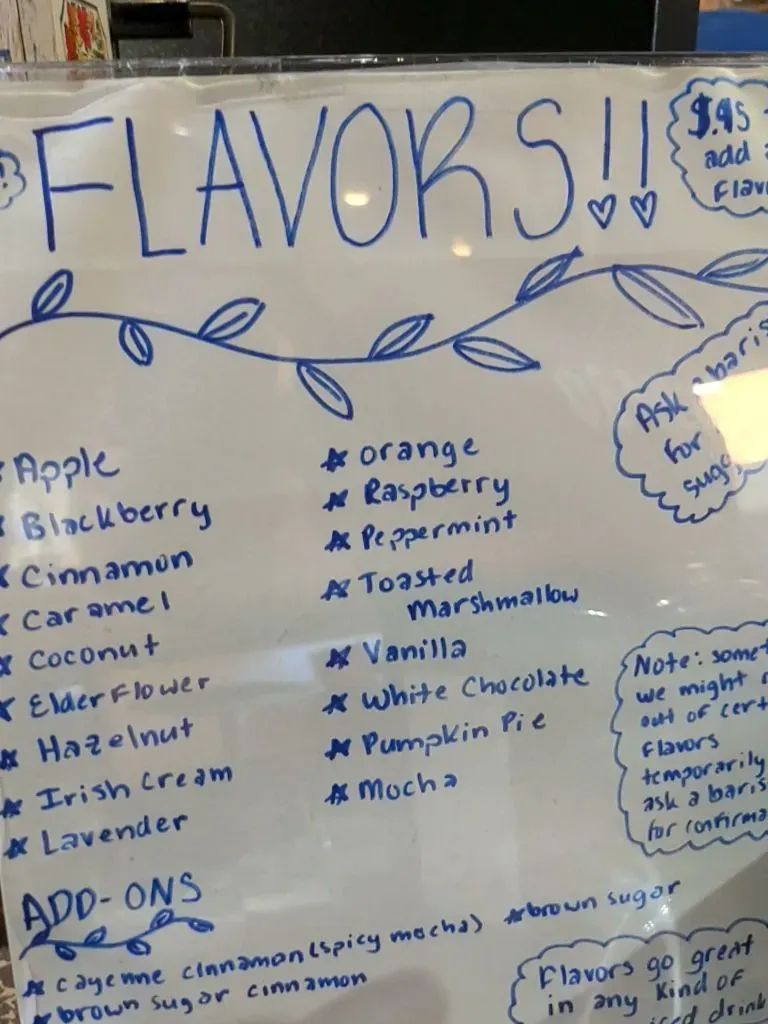 FLAVORS!!
$.95
add a
Flav
Ask a baris
for
sugg
Apple
Blackberry
Cinnamon
Caramel
Coconut
ElderFlower
Hazelnut
Irish Cream
Lavender
orange
Raspberry
Peppermint
Toasted
Marshmallow
Vanilla
White Chocolate
Pumpkin Pie
Mocha
Note: somet
we might r
out of cert
Flavors
temporarily
ask a baris
for confirma
ADD-ONS
cayenne cinnamon (spicy mocha)
brown sugar
brown sugar cinnamon
Flavors go great
in any kind of
iced drink